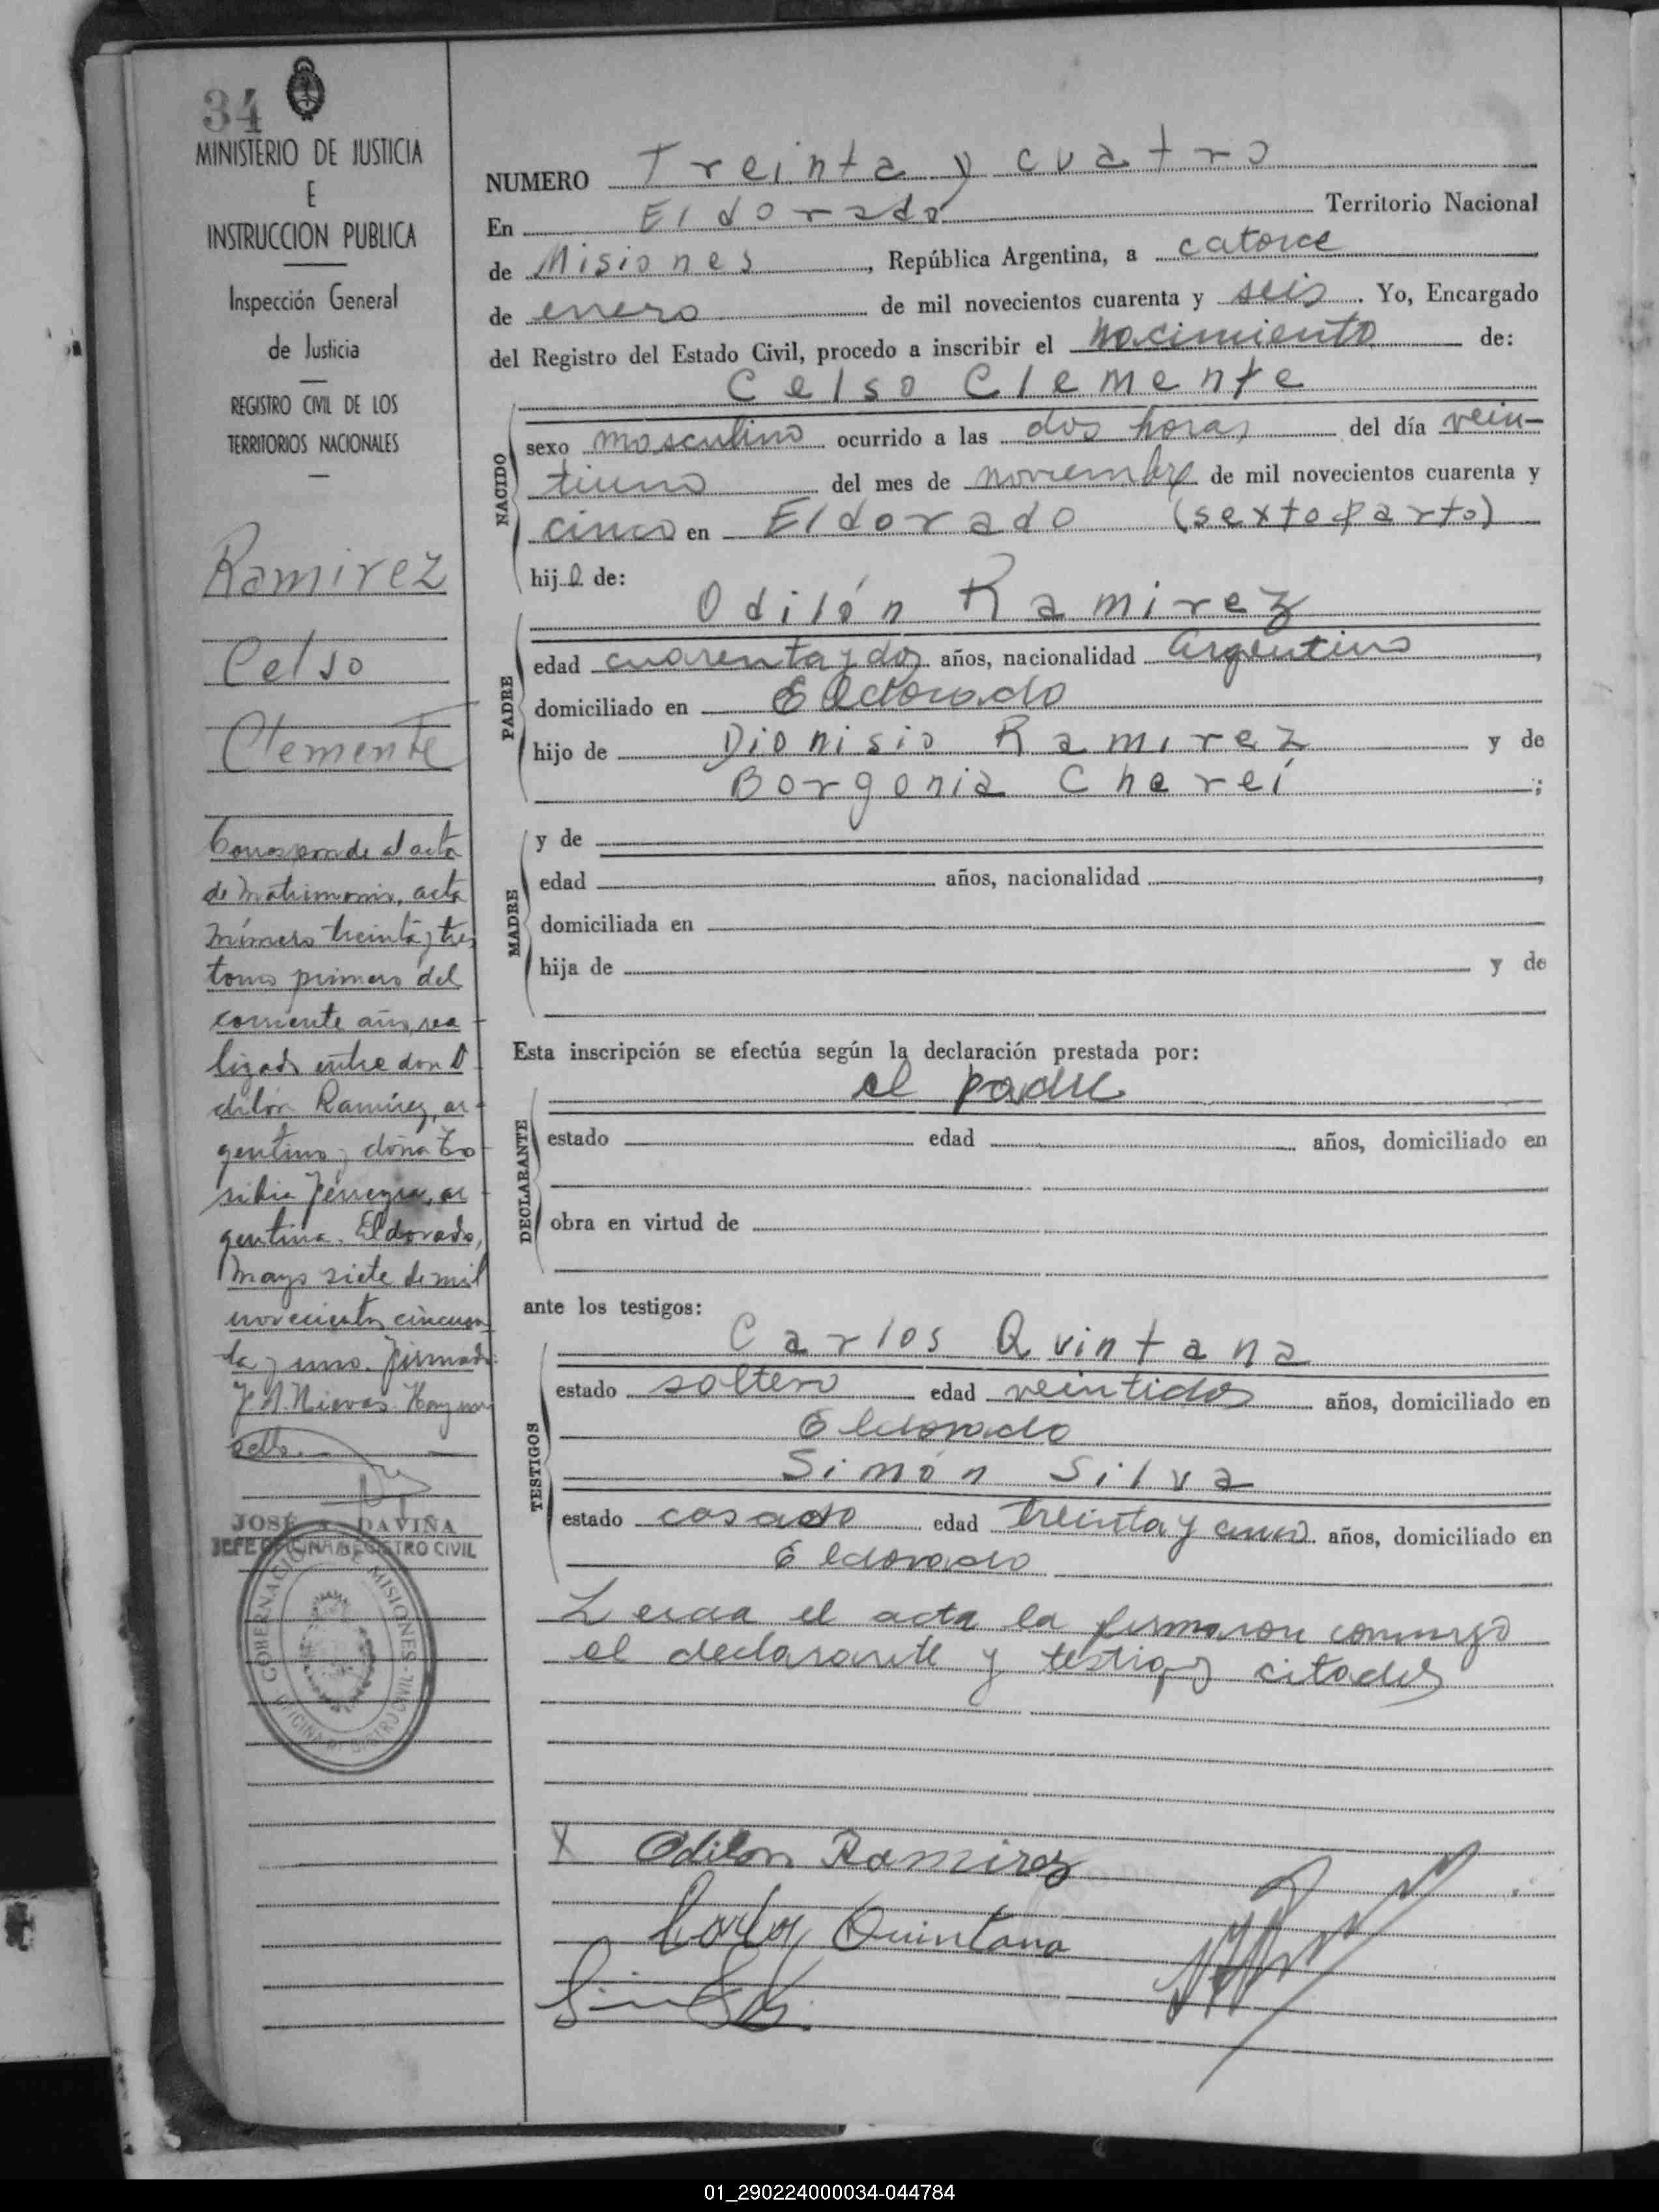 34
MINISTERIO DE JUSTICIA
E
INSTRUCCION PUBLICA
Inspección General
de Justicia
REGISTRO CIVIL DE LOS
TERRITORIOS NACIONALES
Ramirez
Celso
Clemente
Corresponde al acta
de Matrimonio, acta
número treinta y tres
tomo primero del
corriente año, rea
lizado entre don O
dilón Ramírez, ar-
gentino y doña
Ferreyra, ar
gentina. Eldorado,
Mayo siete de mil
novecientos cincuen
ta y uno. Firmado:
J. A. Nievas. Hay un
sello.
JOSÉ DAVIÑA
JEFE OFICINA REGISTRO CIVIL
GOBERNACION DE MISIONES
OFICINA DE REGISTRO CIVIL
NUMERO Treinta y cuatro
En Eldorado Territorio Nacional
de Misiones, República Argentina, a catorce
de enero de mil novecientos cuarenta y seis. Yo, Encargado
del Registro del Estado Civil, procedo a inscribir el nacimiento de:
Celso Clemente
NACIDO
sexo masculino ocurrido a las dos horas del día vein-
tiuno del mes de noviembre de mil novecientos cuarenta y
cinco en Eldorado (sexto parto)
hijo de:
Odilón Ramirez
PADRE
edad cuarenta y dos años, nacionalidad Argentino,
domiciliado en Eldorado
hijo de Dionisio Ramirez y de
Borgonia Chereí ;
MADRE
y de
edad años, nacionalidad ,
domiciliada en
hija de y de
Esta inscripción se efectúa según la declaración prestada por:
el padre
DECLARANTE
estado edad años, domiciliado en
obra en virtud de
ante los testigos:
Carlos Quintana
TESTIGOS
estado soltero edad veintidos años, domiciliado en
Eldorado
Simón Silva
estado casado edad treinta y cinco años, domiciliado en
Eldorado
Leida el acta la firmaron conmigo
el declarante y testigos citados
X Odilon Ramirez
Carlos Quintana
01_290224000034-044784